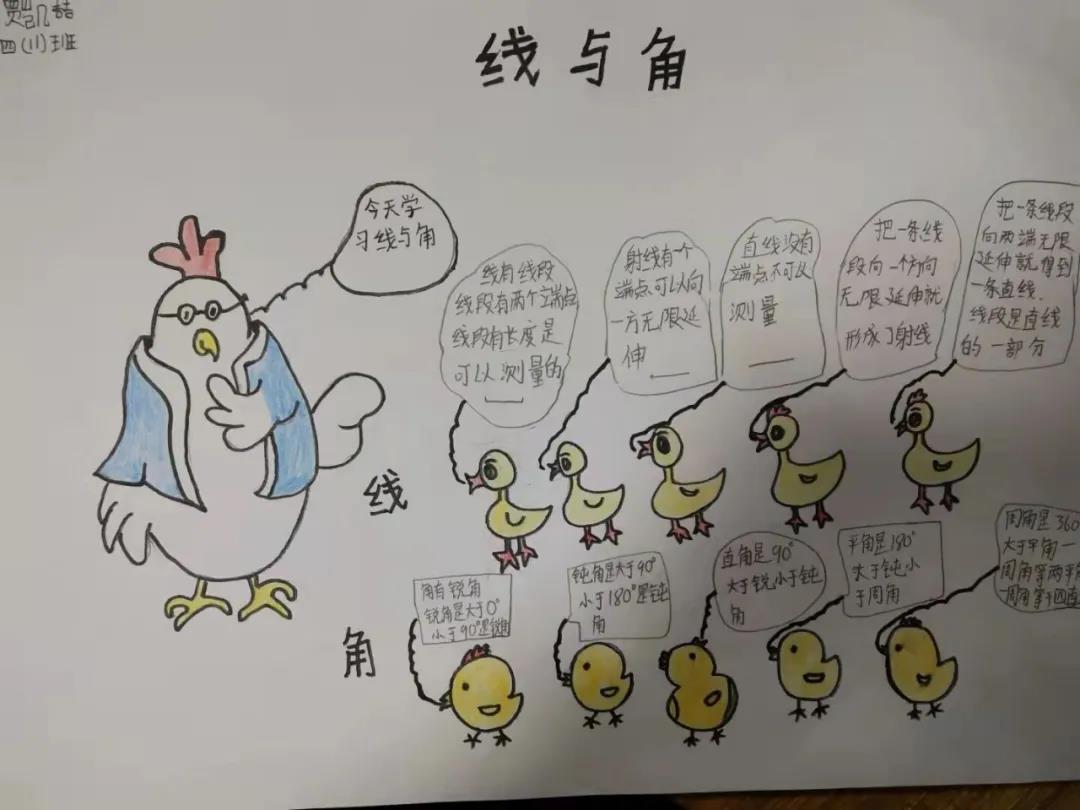 贾凯喆
四(11)班
线与角
今天学
习线与角
线有线段
线段有两个端点
线段有长度是
可以测量的
射线有一个
端点可以向
一方无限延
伸
直线没有
端点不可以
测量
把一条线
段向一个方向
无限延伸就
形成了射线
把一条线段
向两端无限
延伸就得到
一条直线.
线段是直线
的一部分
线
角有锐角
锐角是大于0°
小于90°是锐角
钝角是大于90°
小于180°是钝
角
直角是90°
大于锐小于钝
角
平角是180°
大于钝小
于周角
周角是360
大于平角一
周角等两平角
一周角等于四直
角